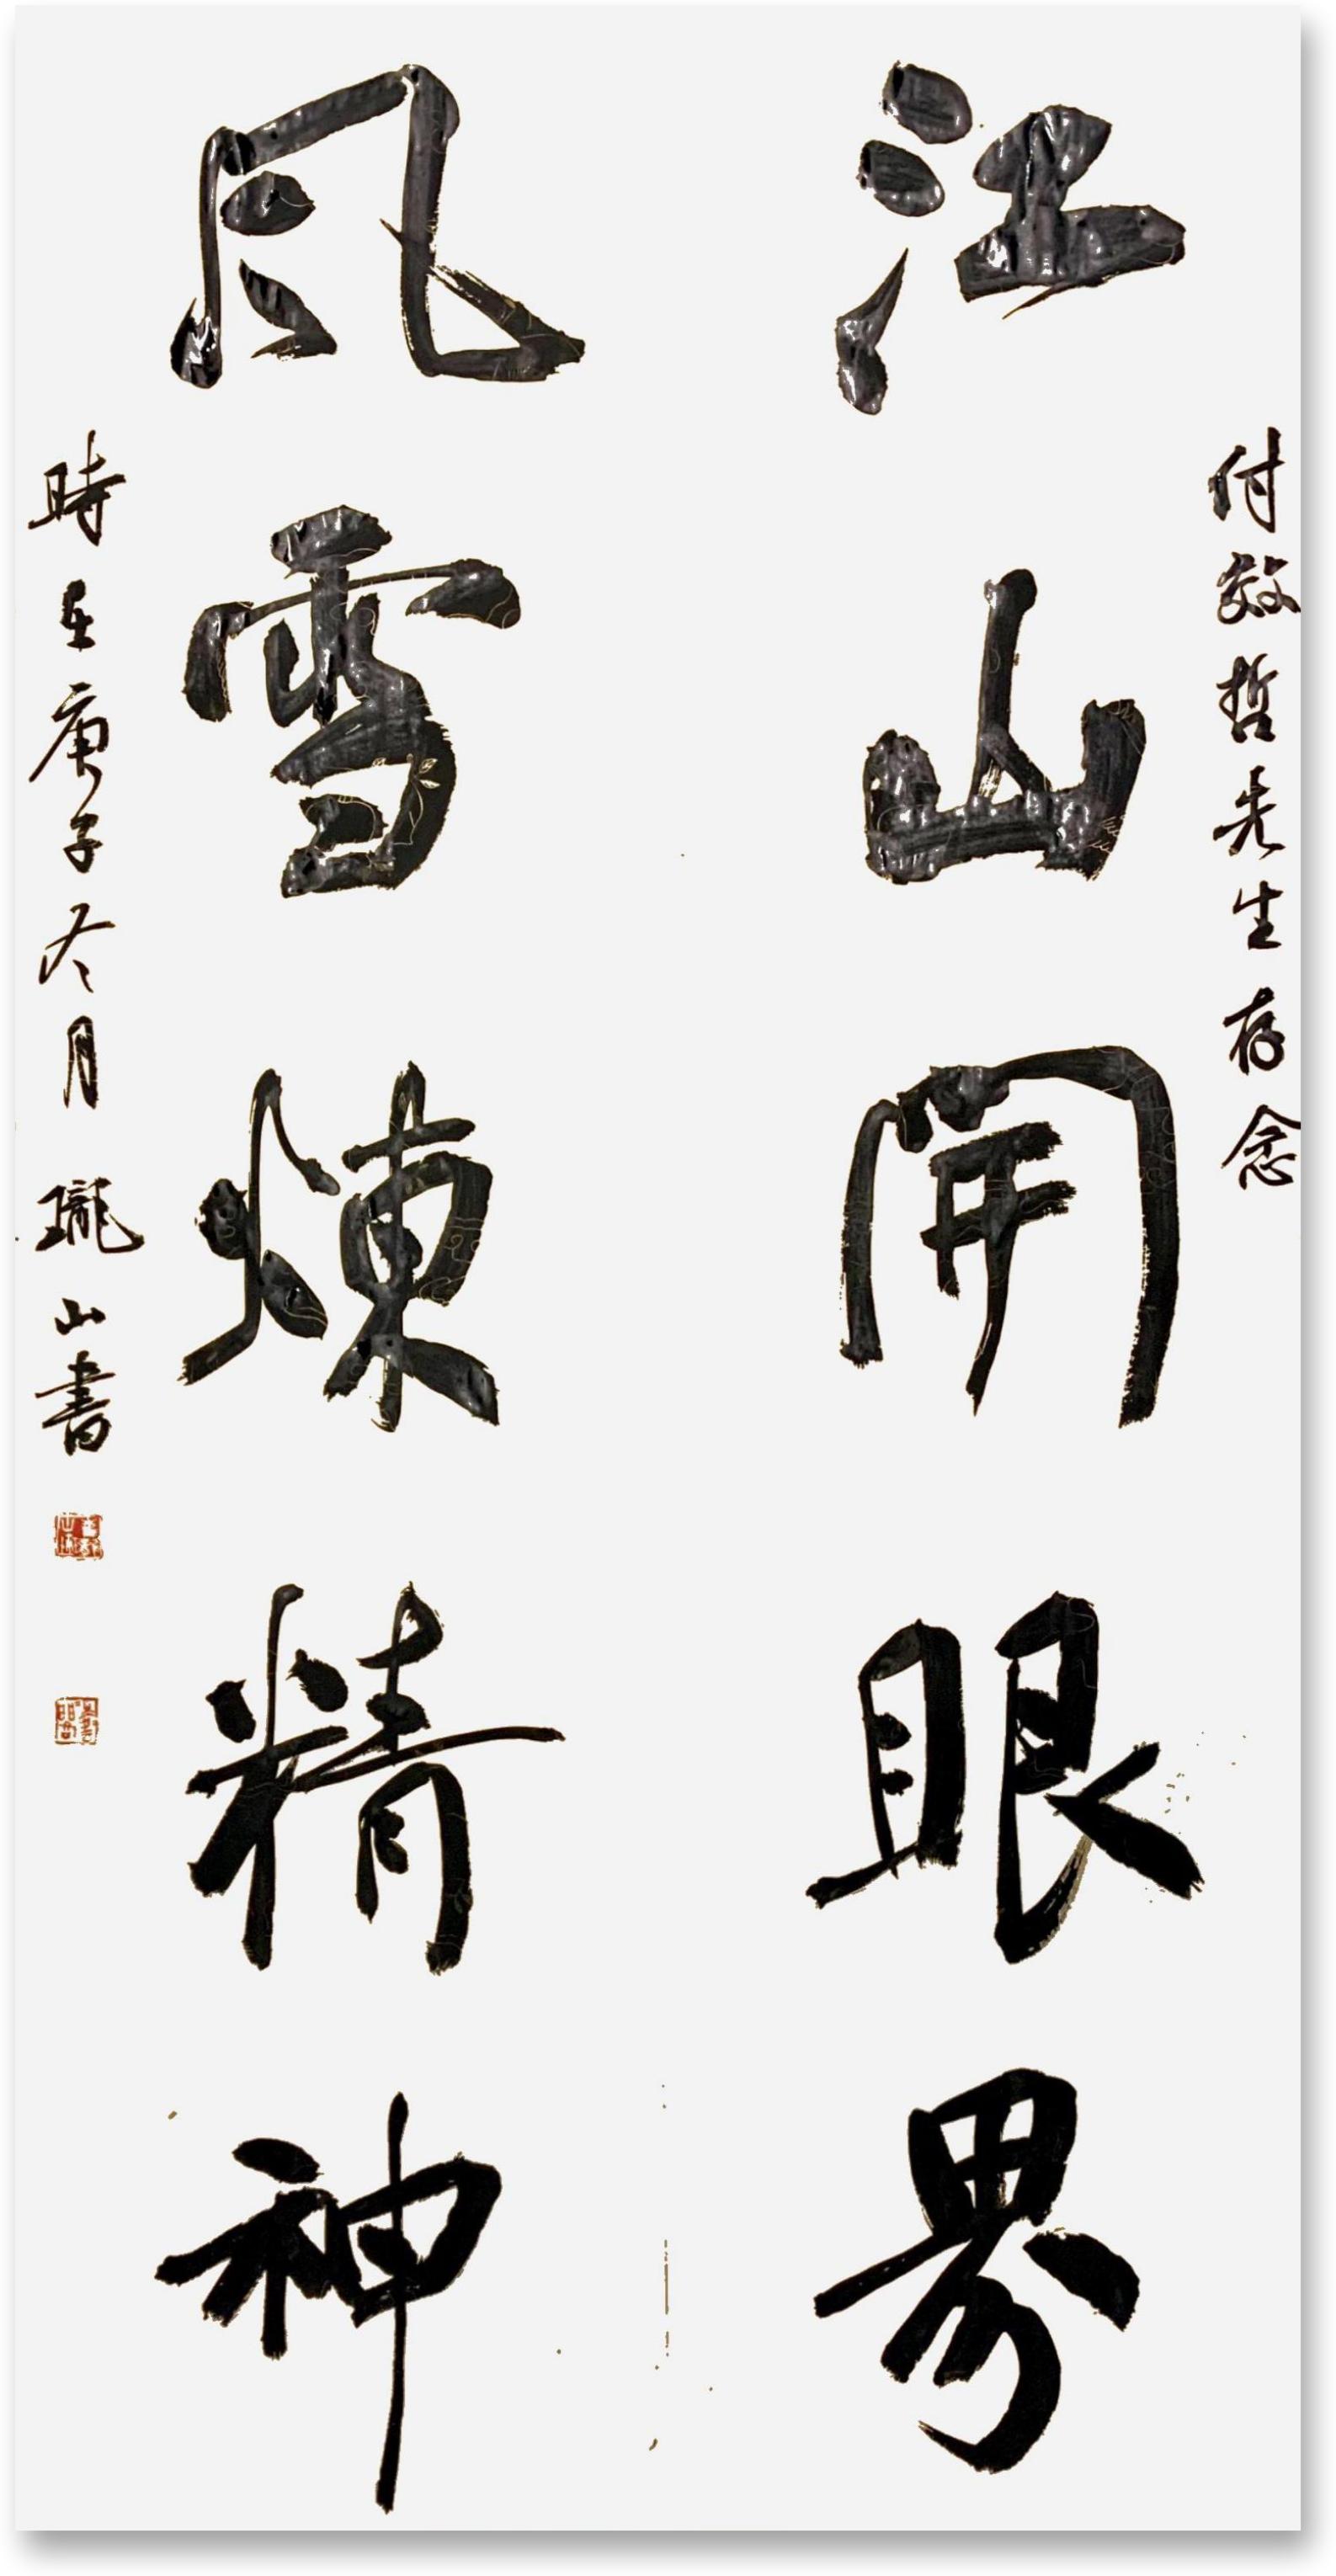 付敬哲先生存念
江山開眼界
風雪煉精神
時在庚子冬月 瓏山書